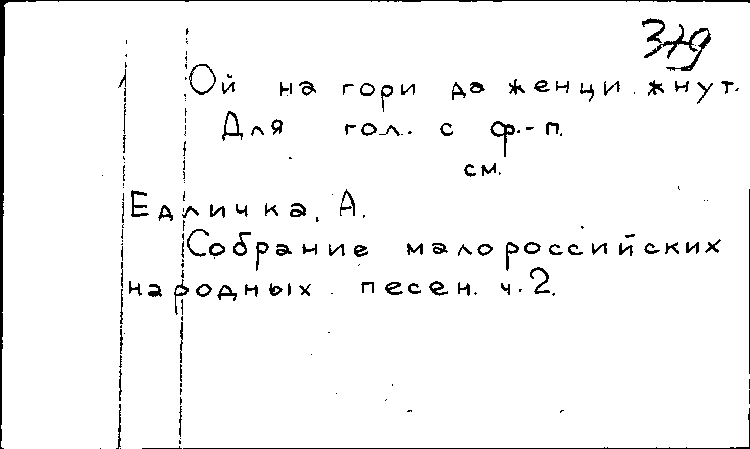 379
Ой на гори да женци жнут.
Для гол. с ф.-п.
см.
Едличка, А.
Собрание малороссийских
народных песен. ч.2.